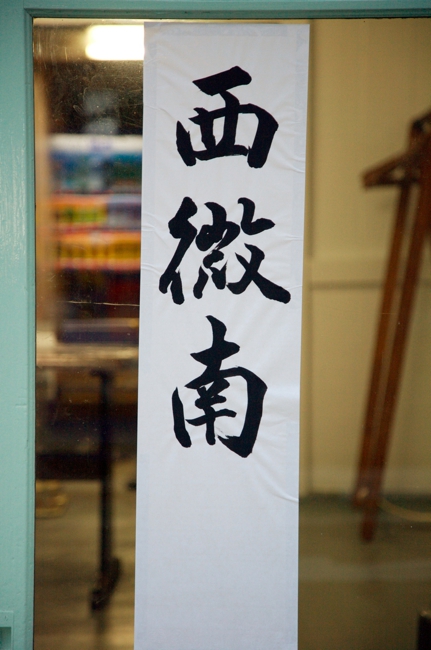 西微南